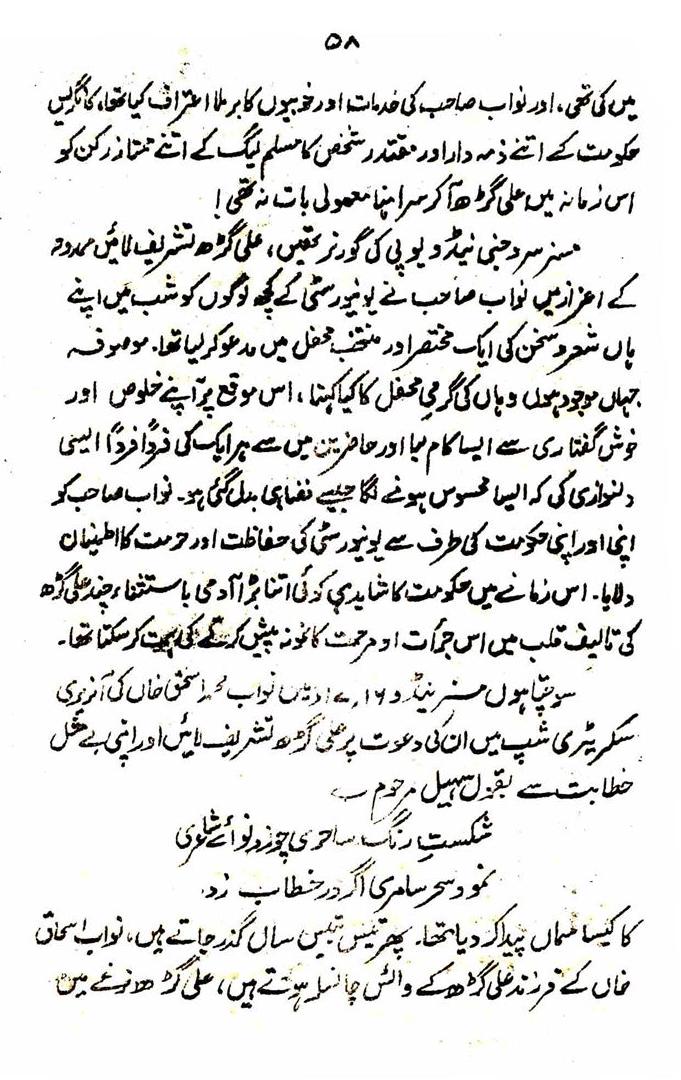 ۵۸
میں کی تھی، اور نواب صاحب کی خدمات اور خوبیوں کا برملا اعتراف کیا تھا، کانگریس
حکومت کے اتنے ذمہ دار اور مقتدر شخص کا مسلم لیگ کے اتنے ممتاز رکن کو
اس زمانہ میں علی گڑھ آ کر سراہنا معمولی بات نہ تھی!
مسز سروجنی نیڈو یوپی کی گورنر تھیں، علی گڑھ تشریف لائیں ممدوحہ
کے اعزاز میں نواب صاحب نے یونیورسٹی کے کچھ لوگوں کو شب میں اپنے
ہاں شعر و سخن کی ایک مختصر اور منتخب محفل میں مدعو کر لیا تھا۔ موصوفہ
جہاں موجود ہوں وہاں کی گرمیِ محفل کا کیا کہنا، اس موقع پر اپنے خلوص اور
خوش گفتاری سے ایسا کام لیا اور حاضرین میں سے ہر ایک کی فرداً فرداً ایسی
دلنوازی کی کہ ایسا محسوس ہونے لگا جیسے فضا ہی بدل گئی ہو۔ نواب صاحب کو
اپنی اور اپنی حکومت کی طرف سے یونیورسٹی کی حفاظت اور حرمت کا اطمینان
دلایا۔ اس زمانے میں حکومت کا شاید ہی کوئی اتنا بڑا آدمی باستثناء چند علی گڑھ
کی تالیف قلب میں اس جرأت اور مرحمت کا نمونہ پیش کرنے کی ہمت کر سکتا تھا۔
سوچتا ہوں مسز نیڈو ۱۶ء میں نواب محمد اسحٰق خاں کی آنریری
سکریٹری شپ میں ان کی دعوت پر علی گڑھ تشریف لائیں اور اپنی بے مثل
خطابت سے بقول سہیل مرحوم ؎
شکستِ رنگ ساحری چو زد نوائے شاعری
نمود سحر سامری اگر در خطاب زد
کا کیسا سماں پیدا کر دیا تھا۔ پھر تیس تیس سال گذر جاتے ہیں، نواب اسحاق
خاں کے فرزند علی گڑھ کے وائس چانسلر ہوتے ہیں، علی گڑھ نرغے میں